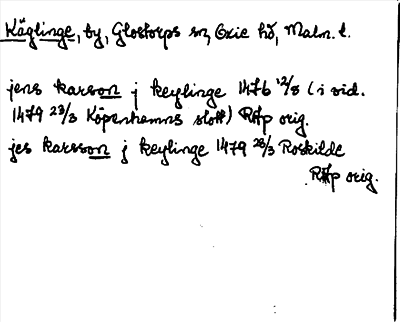 Käglinge, by, Glostorps sn, Oxie hd, Malm. l.
jens karsson j keylinge 1476 12/8 (i vid.
1479 23/3 Köpenhamns slott) RAp orig.
jes karsson j keylinge 1479 23/3 Roskilde
RAp orig.